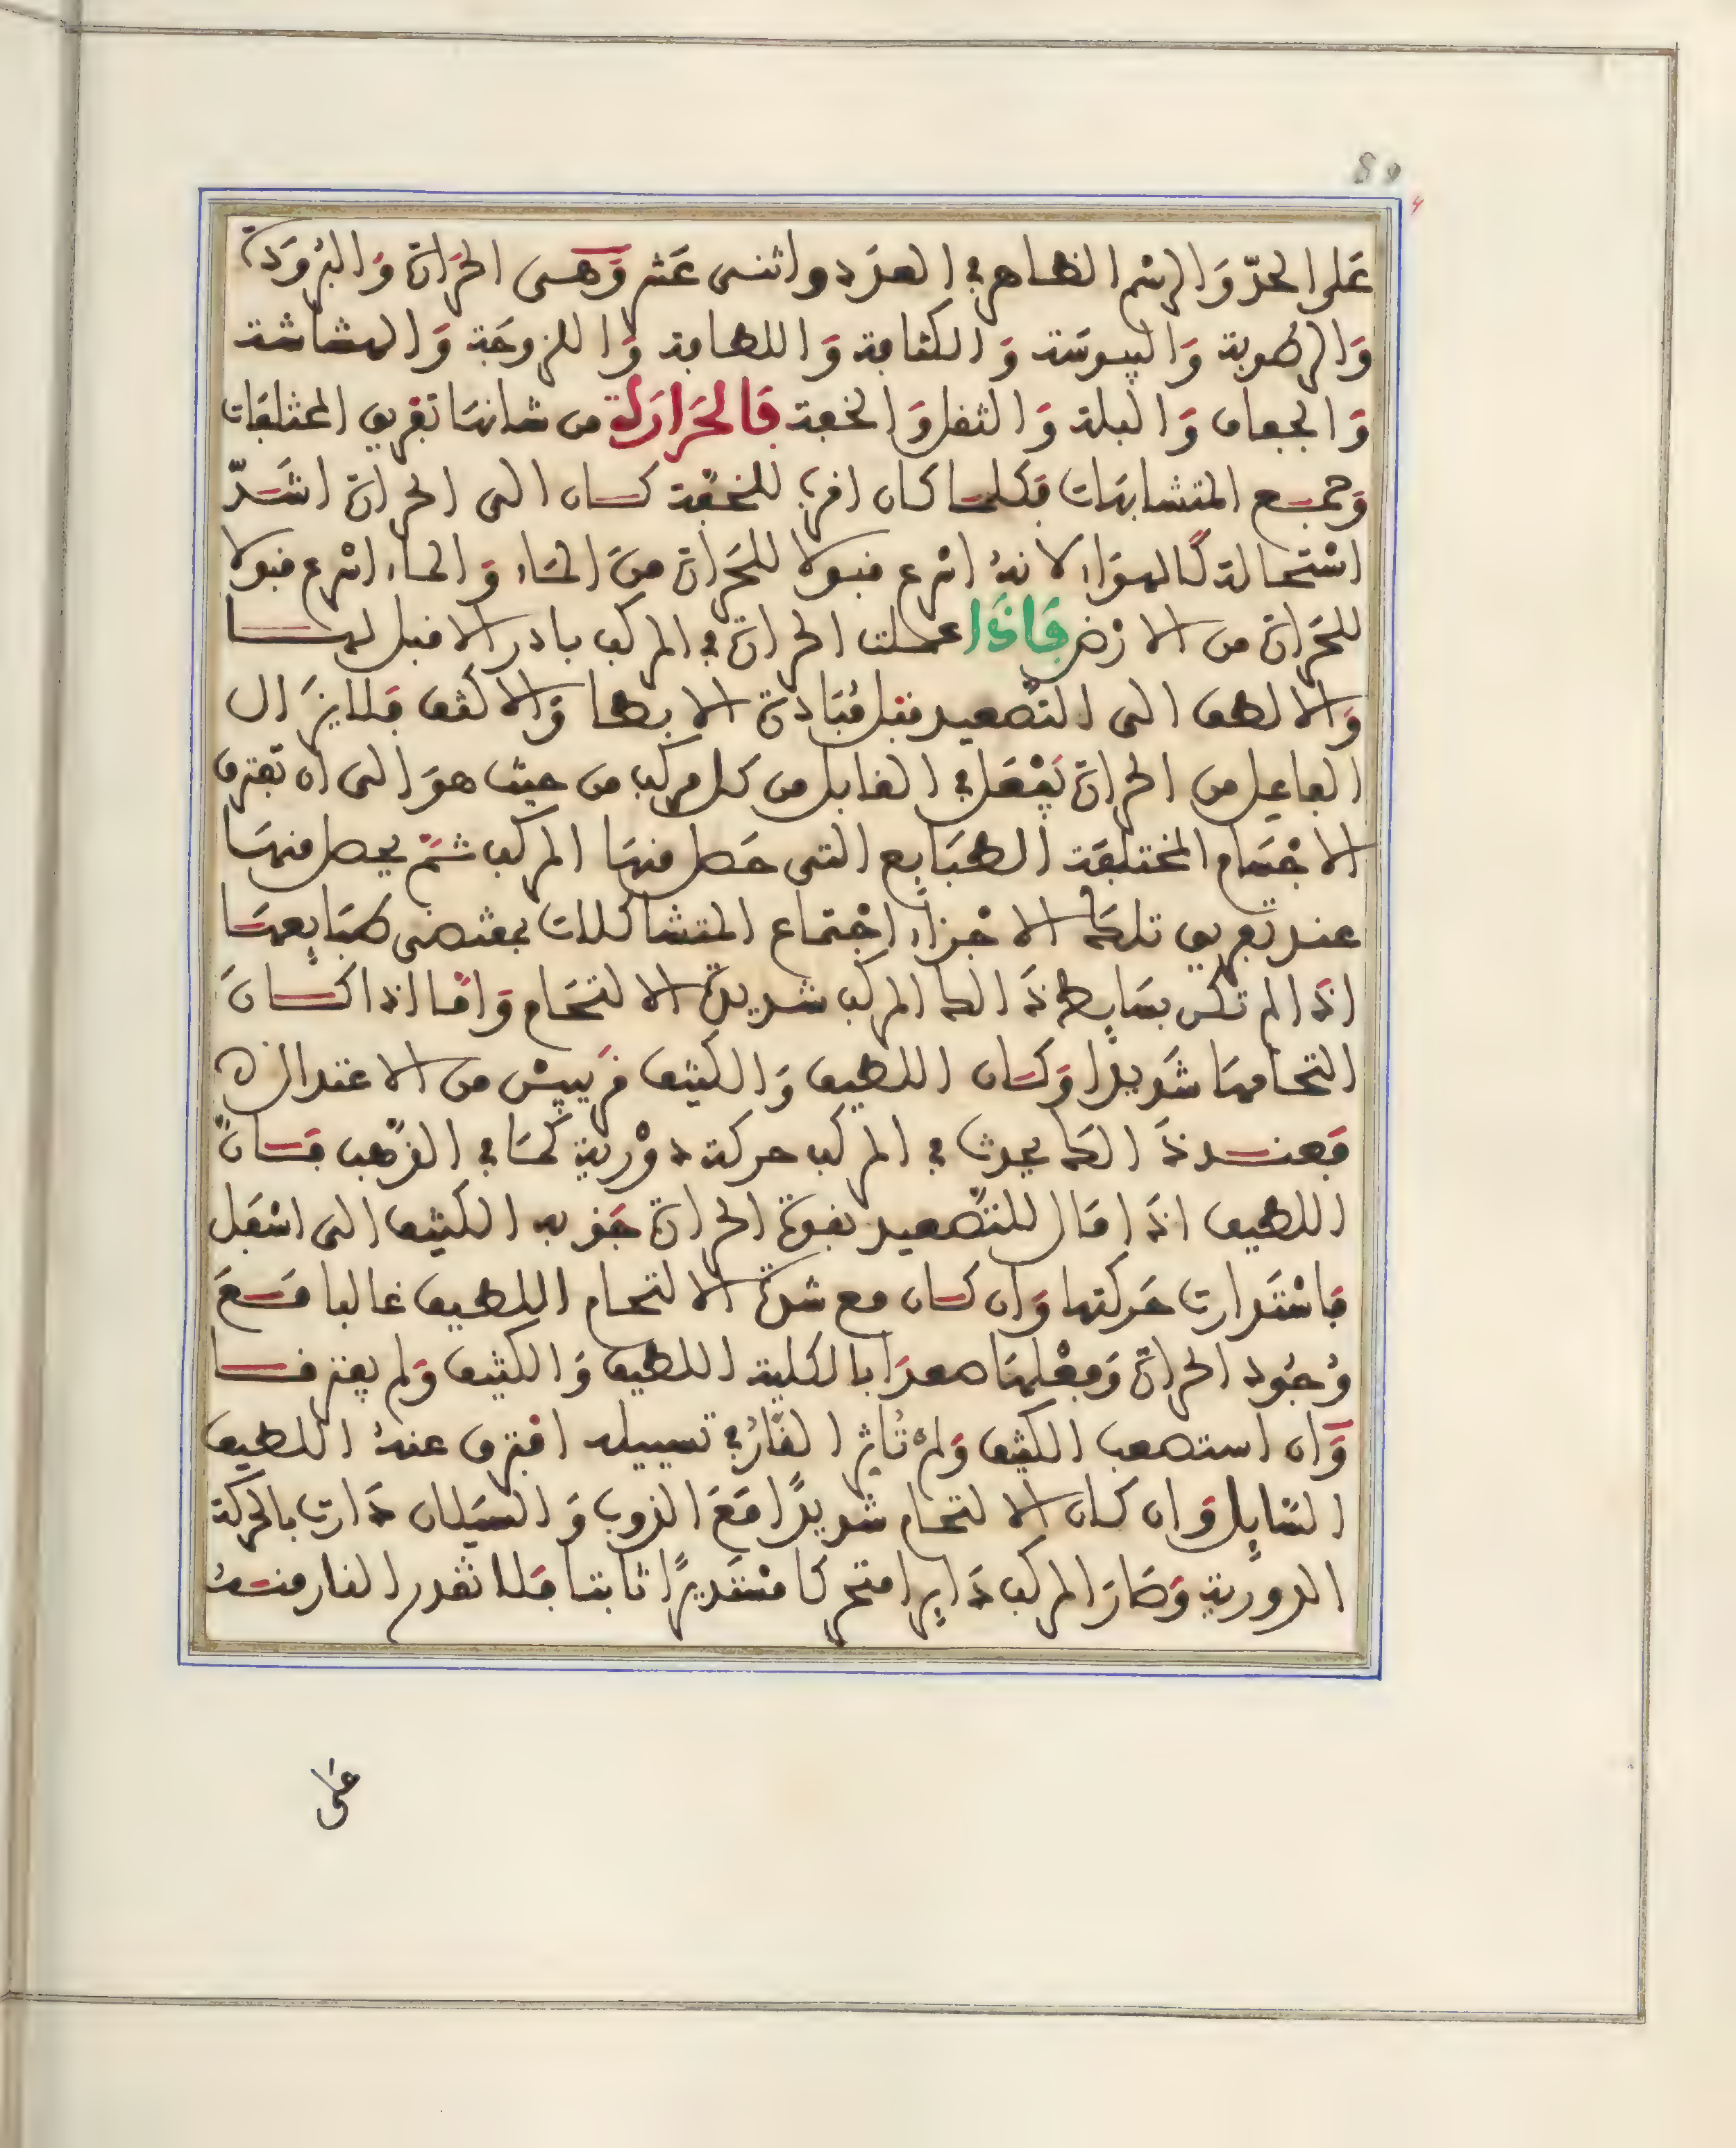 80
على الحدّ والرسم الظاهر في العدد واثنى عشر وهى الحرارة والبرودة
والرطوبة واليبوسة والكثافة واللطافة واللزوجة والهشاشة
والجفاف والبلة والثقل والخفة فالحرارة من شانها تفريق المختلفات
وجمع المتشابهات فكلما كان اقرب للخفة كان الى الحرارة اشدّ
استحالة كالهواء لانه اسرع قبولا للحرارة من الماء والماء اسرع قبولا
للحرارة من الارض فاذا عملت الحرارة في المركب بادر الاقبل لها
والالطف الى التصعيد قبل مبادرة الابطا والاكثف فلا يزال
الفاعل من الحرارة يفعل في القابل من كل مركب من حيث هو الى ان تفترق
الاجسام المختلفة الطبايع التى حصل منها المركب ثم يحصل منها
عند تفريق تلك الاجزاء اجتماع المتشاكلات بمقتضى طبايعها
اذا لم تكن بسايط ذالك المركب شديدة الالتحام واما اذا كان
التحامها شديدا وكان اللطيف والكثيف قريبين من الاعتدال
فعند ذالك يحدث في المركب حركة دورية كما في الذهب فان
اللطيف اذا مال للتصعيد بقوة الحرارة جذبه الكثيف الى اسفل
فاستدارت حركتها وان كان مع شدة الالتحام اللطيف غالبا فمع
وجود الحرارة وفعلها صعدا بالكلية اللطيف والكثيف ولم يفترقا
وان استصعب الكثيف ولم تاثر النار في تسييله افترق عنه اللطيف
السايل وان كان الالتحام شديدًا فمع الذوب والسيلان دارت بالحركة
الدورية وصار المركب دايرا متحركا مستديرًا ثابتا فلا تقدر النار منه
على